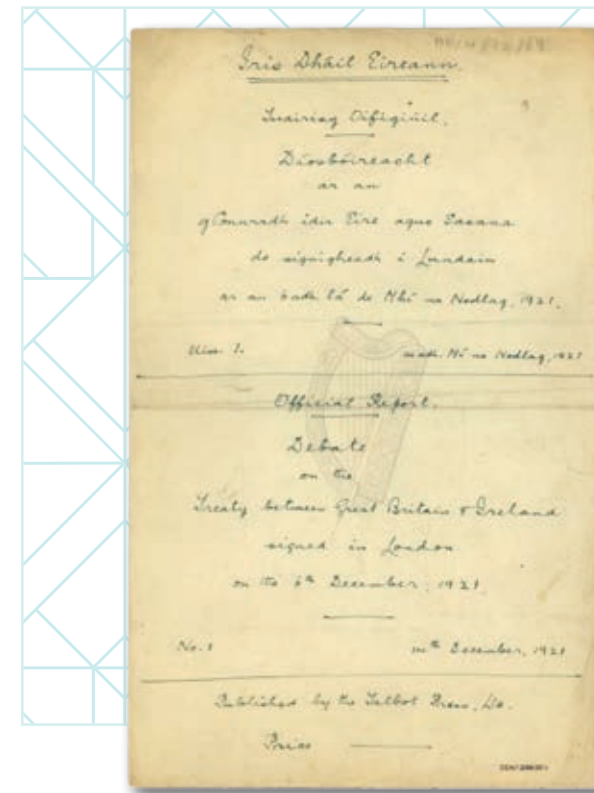 Iris Dháil Éireann.
Tuairisg Oifigiúil.
Díosbóireacht
ar an
gConnradh idir Éire agus Sasana
do signigheadh i Lundain
ar an 6adh lá de Mhí na Nodlag, 1921.
Uimh. 1.
adh. Mí na Nodlag, 1921
Official Report.
Debate
on the
Treaty between Great Britain & Ireland
signed in London
on the 6th December, 1921.
No. 1
th December, 1921
Published by the Talbot Press, Ld.
Price